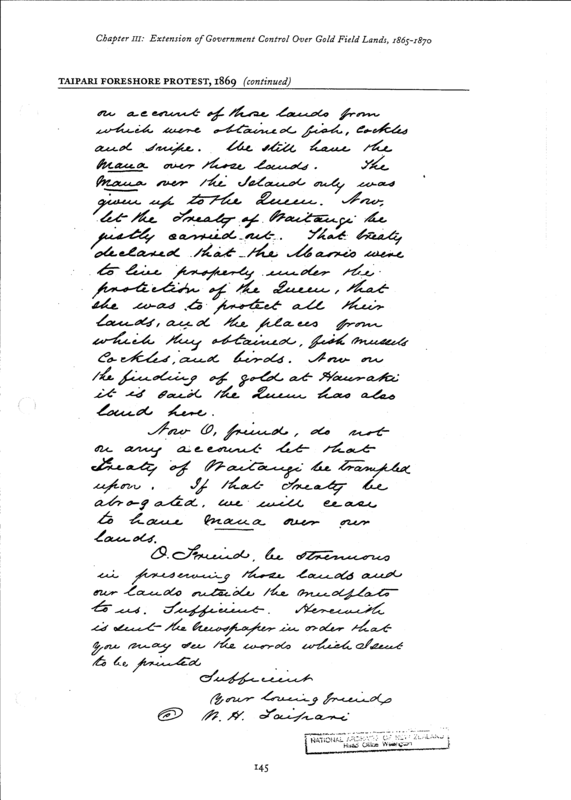 Chapter III: Extension of Government Control Over Gold Field Lands, 1865-1870
TAIPARI FORESHORE PROTEST, 1869 (continued)
on account of those lands from
which were obtained fish, cockles
and snipe. We still have the
Mana over those lands. The
Mana over the Island only was
given up to the Queen. Now,
let the Treaty of Waitangi be
justly carried out. That treaty
declared that the Maoris were
to live properly under the
protection of the Queen, that
she was to protect all their
lands, and the places from
which they obtained, fish mussels
Cockles, and birds. Now on
the finding of gold at Hauraki
it is said the Queen has also
land here.
Now O, friend, do not
on any account let that
Treaty of Waitangi be trampled
upon. If that Treaty be
abrogated, we will cease
to have mana over our
lands.
O. Friend, be strenuous
in preserving those lands and
our lands outside the mudflats
to us. Sufficient. Herewith
is sent the Newspaper in order that
you may see the words which I sent
to be printed
Sufficient
Your loving friend
W. H. Taipari
NATIONAL ARCHIVES OF NEW ZEALAND
Head Office Wellington
145